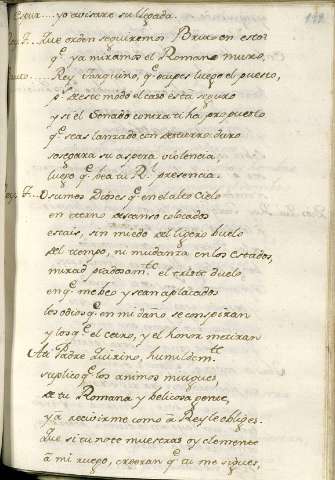 yo avisare su llegada.
Que orden seguiremos Bruto en esto?
q.e ya miramos el Romano muro,
Rey Tarquino, q.e ocupes luego el puesto,
p.s de este modo el caso està seguro
y si el Senado contra ti ha propuesto
q.e seas lanzado con destierro duro
sosegara su aspera violencia,
luego q.e vea tu R.l presencia.
O sumos Dioses q.e en el alto Cielo
en eterno descanso colocados
estais, sin miedo del ligero buelo
del tiempo, ni mudanza en los estados,
mirad piadosam.te el triste duelo
en q.e me veo y sean aplacados
los odios q.e en mi daño se conspiran
y los q.e el cetro, y el honor me tiran
A ti Padre Quirino, humildem.te
suplico q.e los animos muebas,
de tu Romana y belicosa gente,
y a recivirme como à Rey le obligues.
Que si tu no te muestras oy clemente
à mi ruego, creeran q.e tu me sigues,